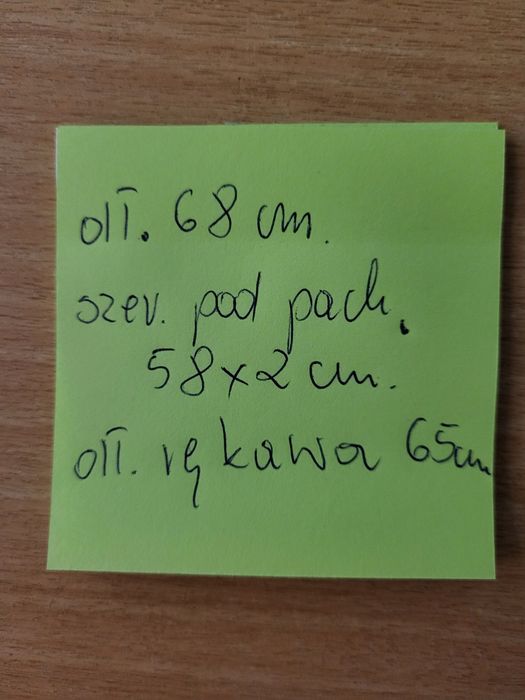 dł. 68 cm.
szer. pod pach.
58x2 cm.
dł. rękawa 65cm